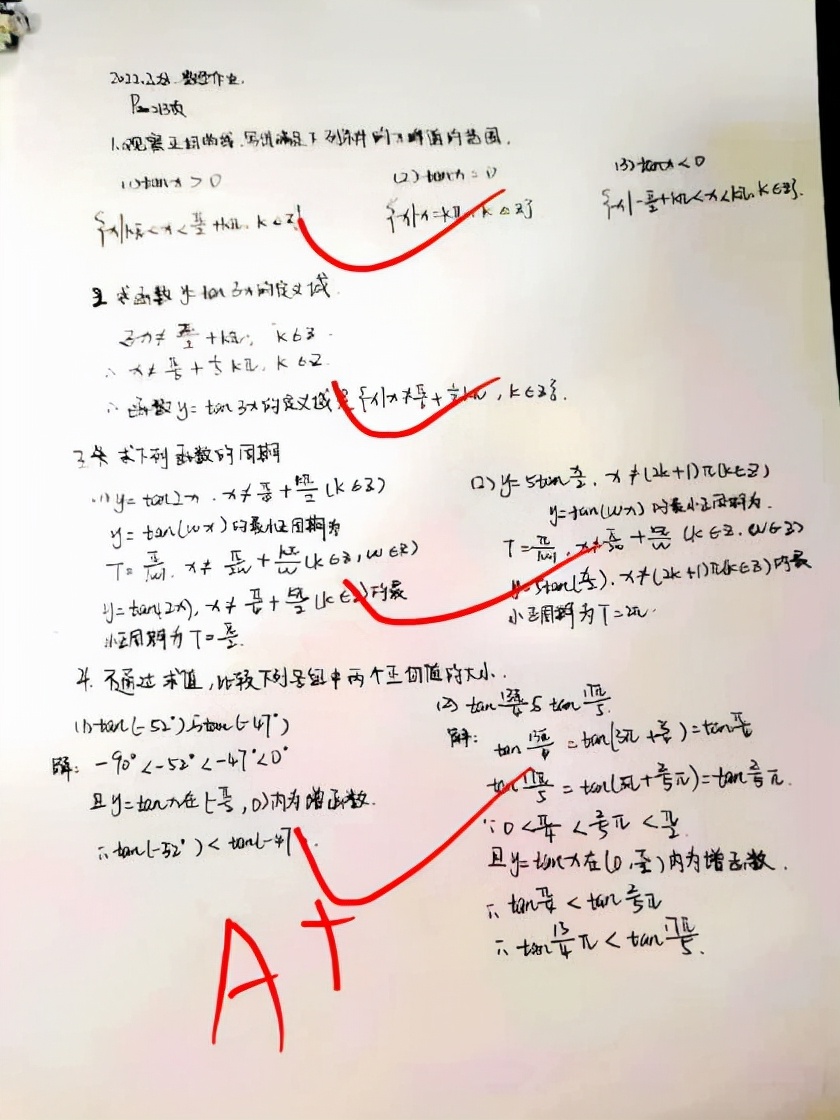 2022.2.23. 数学作业.
P 213页
1. 观察正切曲线,写出满足下列条件的x值的范围.
(1) tanx > 0 (2) tanx = 0 (3) tanx < 0
{x|kπ<x<π/2+kπ, k∈Z} {x|x=kπ, k∈Z} {x|-π/2+kπ<x<kπ, k∈Z}.
2. 求函数 y=tan 3x的定义域.
3x≠π/2+kπ, k∈Z.
∴ x≠π/6+1/3kπ, k∈Z.
∴ 函数 y=tan 3x的定义域是{x|x≠π/6+1/3kπ, k∈Z}.
3. 求下列函数的周期
(1) y=tan2x. x≠π/4+kπ/2 (k∈Z)
y=tan(wx)的最小正周期为
T=π/|w|. x≠π/2w+kπ/w (k∈Z, w∈Z)
y=tan(2x), x≠π/4+kπ/2 (k∈Z)的最
小正周期为T=π/2.
(2) y=5tan x/2. x≠(2k+1)π(k∈Z)
y=tan(wx)的最小正周期为.
T=π/|w|. x≠π/2w+kπ/w (k∈Z. w∈Z)
y=5tan(x/2). x≠(2k+1)π(k∈Z)的最
小正周期为T=2π.
4. 不通过求值,比较下列各组中两个正切值的大小.
(1) tan(-52°)与tan(-47°)
解: -90°<-52°<-47°<0°
且y=tanx在(-π/2, 0)内为增函数.
∴ tan(-52°) < tan(-47
(2) tan 13π/4 与 tan 17π/5.
解: tan 13π/4 = tan(3π+π/4) = tan π/4
tan 17π/5 = tan(3π+2/5π) = tan 2/5π.
∵ 0<π/4<2/5π<π/2
且y=tanx在(0, π/2)内为增函数.
∴ tan π/4 < tan 2/5π
∴ tan 13/4π < tan 17π/5.
A+